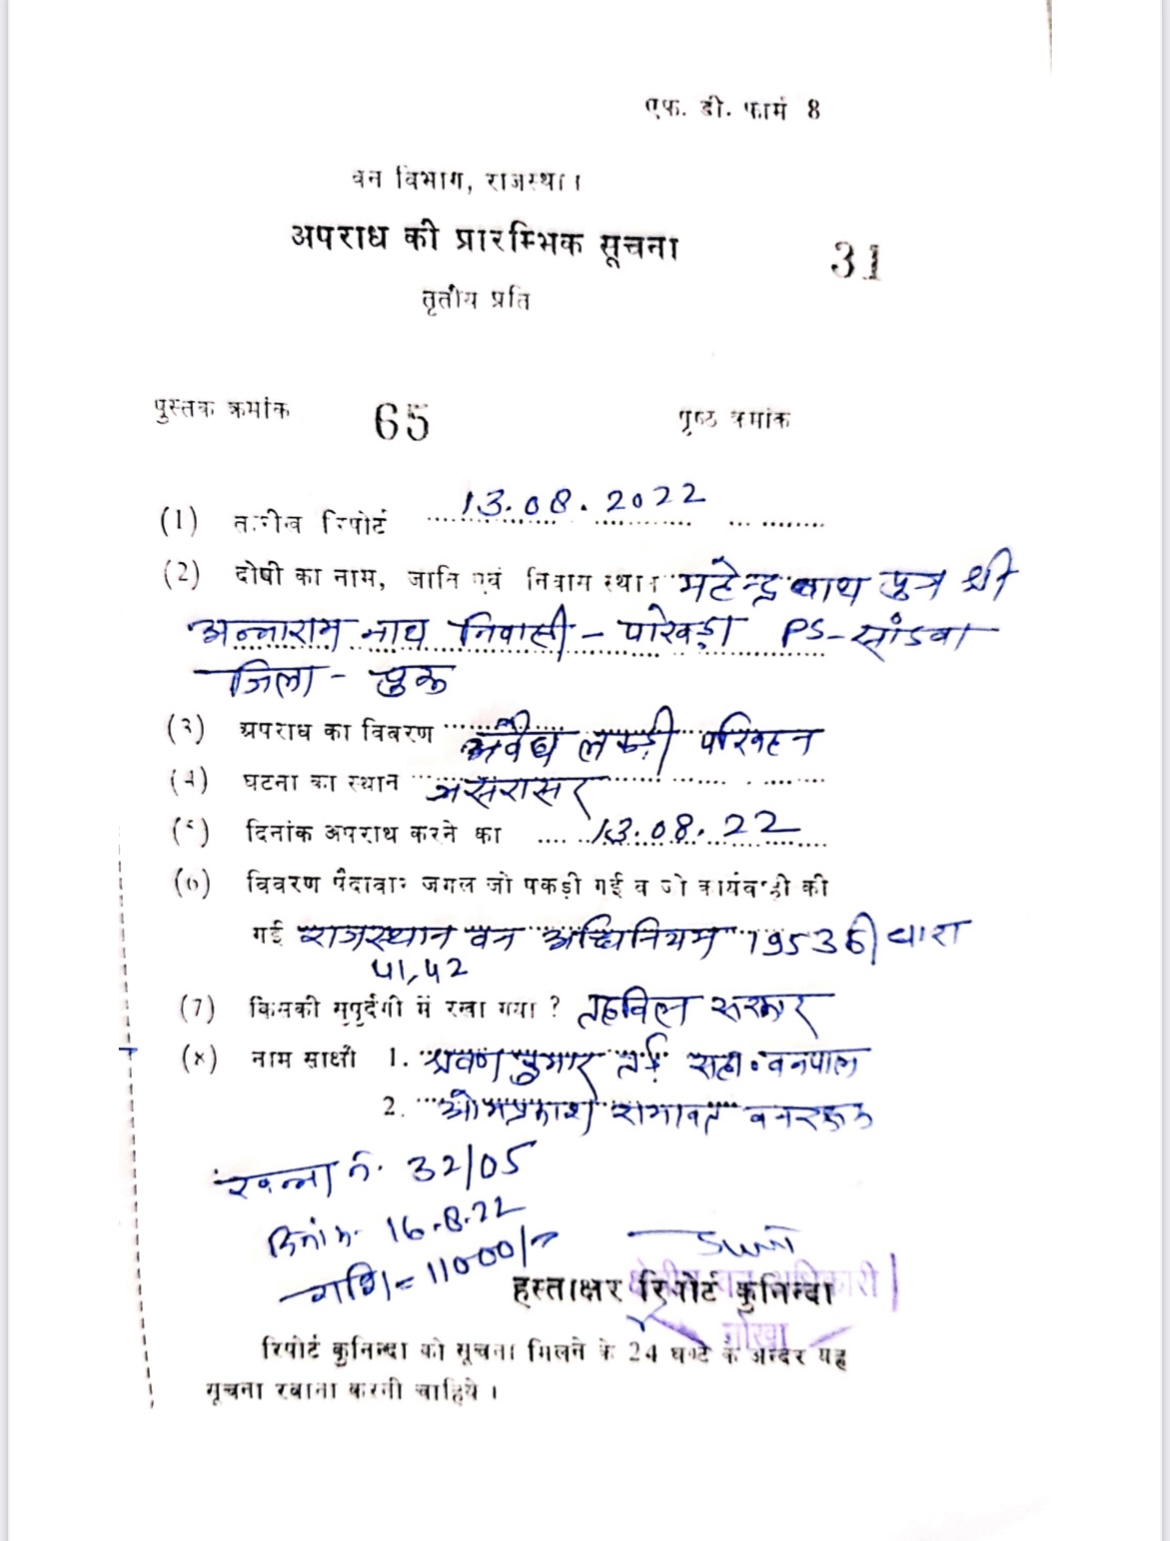 एफ. डी. फार्म 8
वन विभाग, राजस्थान
अपराध की प्रारम्भिक सूचना
31
तृतीय प्रति
पुस्तक क्रमांक 65 पृष्ठ क्रमांक
(1) तारीख रिपोर्ट 13.08.2022
(2) दोषी का नाम, जाति एवं निवास स्थान महेन्द्र नाथ पुत्र श्री
अन्नाराम नाथ निवासी - PS- सांडवा
जिला - चुरू
(3) अपराध का विवरण अवैध लकड़ी परिवहन
(4) घटना का स्थान जसरासर
(5) दिनांक अपराध करने का 13.08.22
(6) विवरण पैदावार जंगल जो पकड़ी गई व जो कार्यवाही की
गई राजस्थान वन अधिनियम 1953 की धारा
41,42
(7) किसकी सुपुर्दगी में रखा गया ? तहविल सरकार
(8) नाम साक्षी 1. श्रवण कुमार सहा॰ वनपाल
2. ओमप्रकाश वनरक्षक
रवन्ना नं. 32/05
दिनांक 16.8.22
राशि = 11000/-
हस्ताक्षर रिपोर्ट कुनिन्दा
क्षेत्रीय वन अधिकारी
नोखा
रिपोर्ट कुनिन्दा को सूचना मिलने के 24 घण्टे के अन्दर यह
सूचना रवाना करनी चाहिये ।